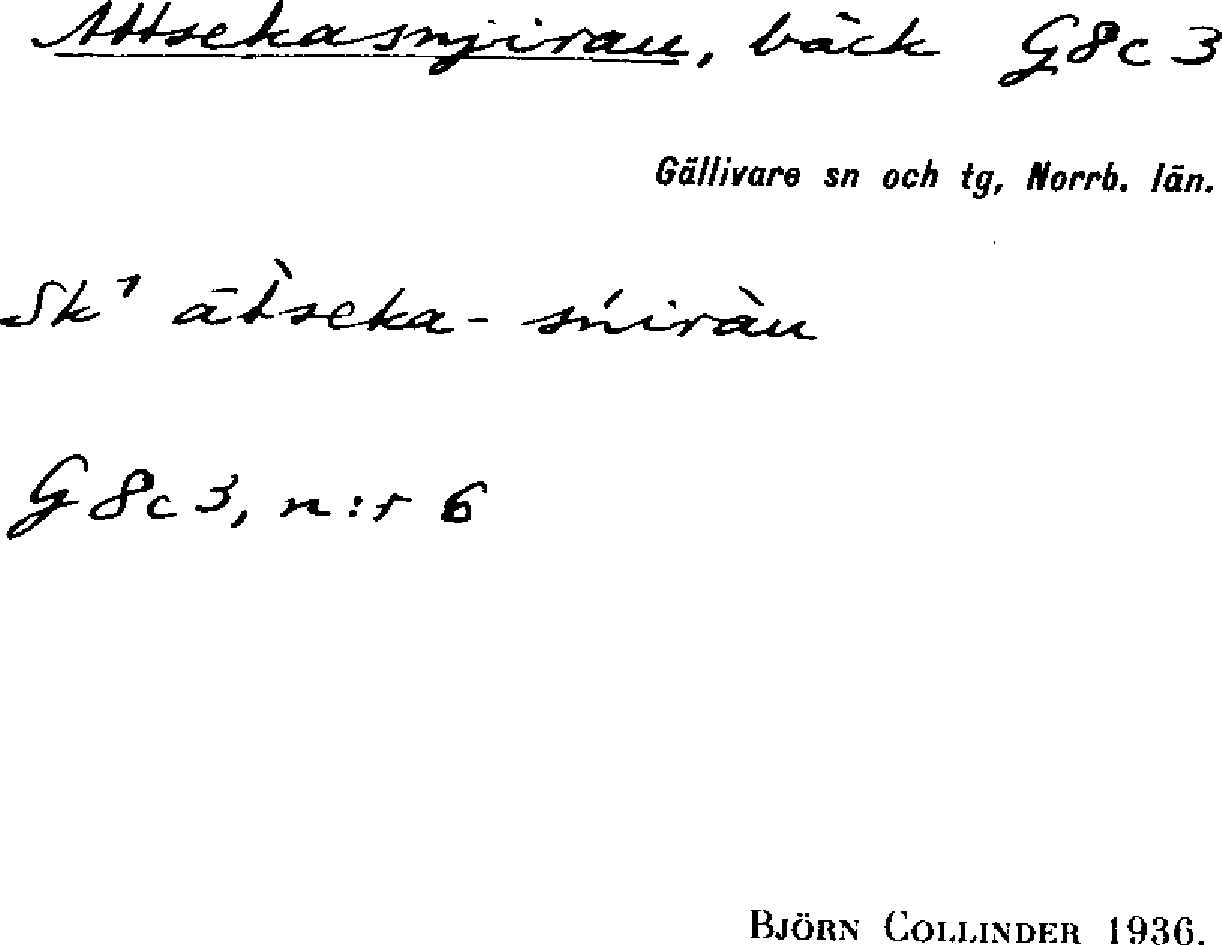 Attsekasnjirau, bäck G8c3
Gällivare sn och tg, Norrb. län.
Sk¹ āt̀seka-sńiràu
G8c3, n:r 6
BJÖRN COLLINDER 1936.